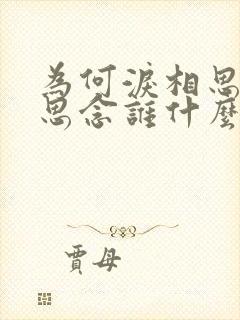 為何淚相思
思念誰什麼
賈母